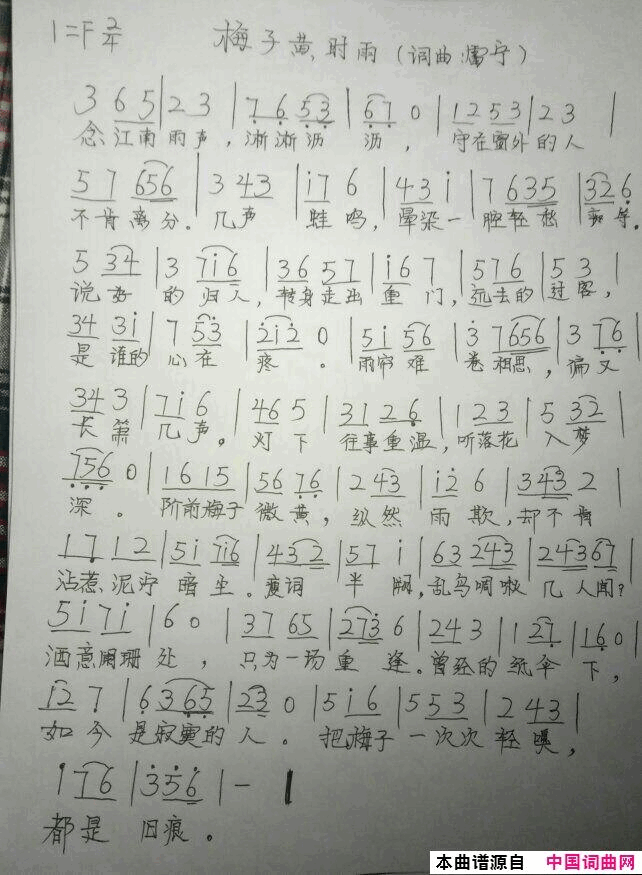 1=F 2/4 梅子黄时雨(词曲:宁)
3 65|23|76 53|67 0|12 53|23|
念江南雨声,淅淅沥沥,守在窗外的人
57 656|3 43|i7 6|43 i|7 635|326
不肯离分。几声蛙鸣,晕染一腔轻愁。
5 34|3 7i6|36 57|i6 7|576|53|
说好的归人,转身走出重门,远去的过客,
34 3i|7 53|2i2 0|5i 56|3 7656|3 76|
是谁的心在疼。雨帘难卷相思,偏又
34 3|7i6|46 5|31 26|123|5 32|
长箫几声。灯下往事重温,听落花入梦
756 0|16 15|56 76|2 43|i2 6|343 2|
深。阶前梅子微黄,纵然雨欺,却不肯
17 12|5i 7i6|43 2|57 i|63 243|243 67|
沾惹泥泞暗尘。词半阙,乱鸟啁啾几人闻?
5i 7i|60|37 65|273 6|243|1 27|16 0|
洒意阑珊处,只为一场重逢。曾经的纸伞下,
i2 7|6 365|23 0|5 i6|553|2 43|
如今是寂寞的人。把梅子一次次轻嗅,
1 76|356|-|
都是旧痕。
本曲谱源自 中国词曲网